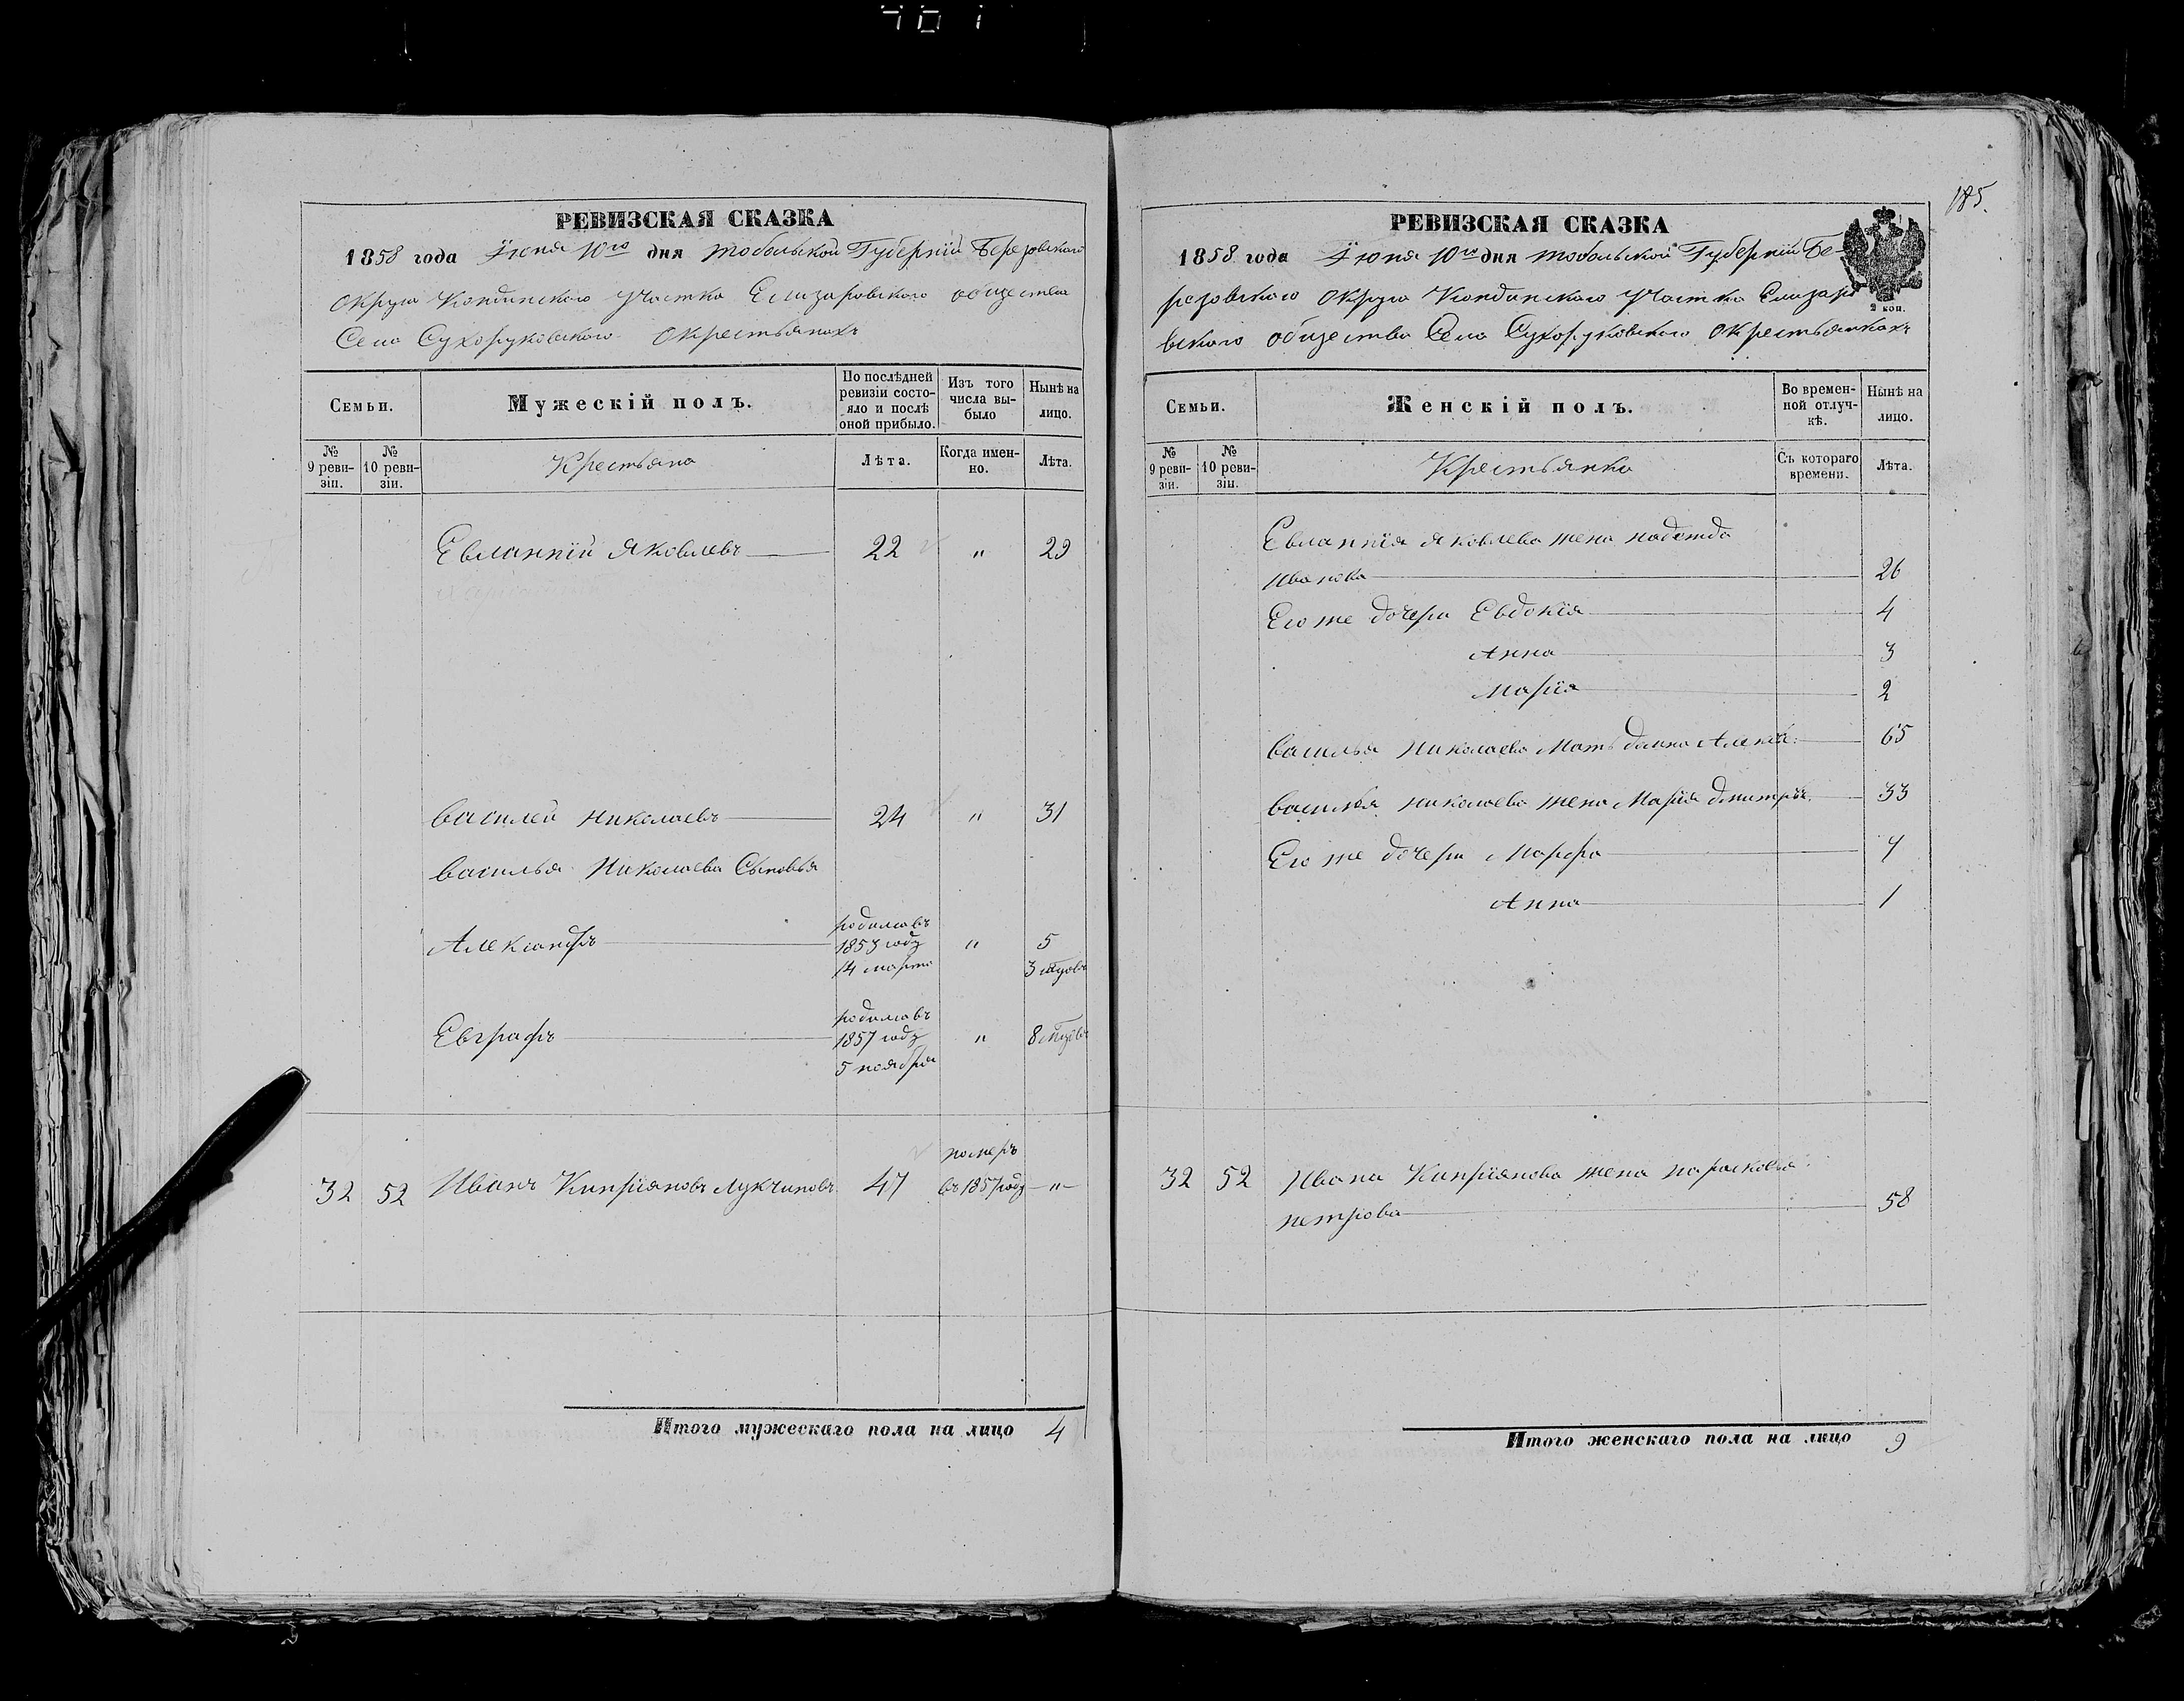 РЕВИЗСКАЯ СКАЗКА
1858 года Іюня 10го дня Тобольской Губерніи Березовскаго
округа Кондинскаго участка Елизаровскаго общества
Села Сухоруковскаго о крестьянахъ
Семьи.
Мужескій полъ.
По послѣдней ревизіи состояло и послѣ оной прибыло.
Изъ того числа выбыло
Нынѣ на лицо.
№ 9 ревизіи.
№ 10 ревизіи.
Крестьяне
Лѣта.
Когда именно.
Лѣта.
Евлампій Яковлевъ 22 " 29
Василей Николаевъ 24 " 31
Василья Николаева Сыновья
Александръ родился въ 1853 году 14 марта " 5
Евграфъ родился въ 1857 году 5 ноября "
32 52 Иванъ Кипріяновъ Лукчиновъ 47 померъ въ 1857 году —"—
Итого мужескаго пола на лицо 4
185.
РЕВИЗСКАЯ СКАЗКА
1858 года Іюня 10го дня Тобольской Губерніи Бе-
резовскаго округа Кондинскаго участка Елизаро
2 коп.
вскаго общества Села Сухоруковскаго о крестьянкахъ
Семьи.
Женскій полъ.
Во временной отлучкѣ.
Нынѣ на лицо.
№ 9 ревизіи.
№ 10 ревизіи.
Крестьянки
Съ котораго времени.
Лѣта.
Евлампія Яковлева жена Надежда
Иванова 26
Его же дочери Евдокія 4
Анна 3
Марія 2
Василья Николаева Мать 65
Василья Николаева жена Марія Дмитрѣв. 33
Его же дочери Марфа
Анна 1
32 52 Ивана Кипріянова жена Парасковья
Петрова 58
Итого женскаго пола на лицо 9